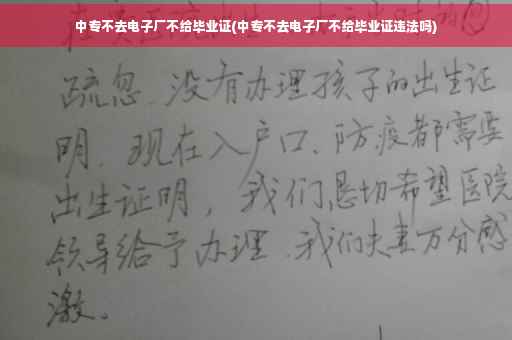 中专不去电子厂不给毕业证(中专不去电子厂不给毕业证违法吗)
疏忽.没有办理孩子的出生证
明.现在入户口、防疫都需要
出生证明,我们恳切希望医院
领导给予办理.我们夫妻万分感
激。